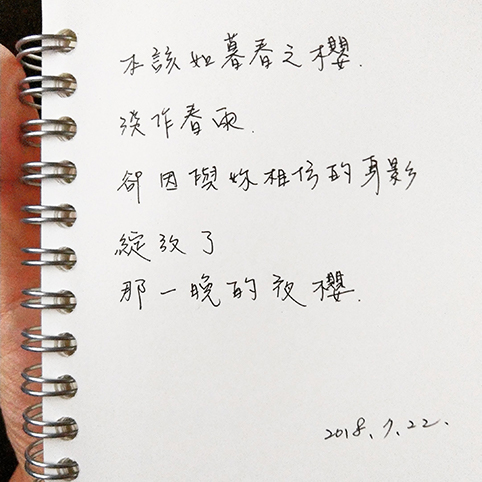 本該如暮春之櫻.
淺作春雨.
卻因與妳相依的身影
綻放了
那一晚的夜櫻.
2018.7.22.